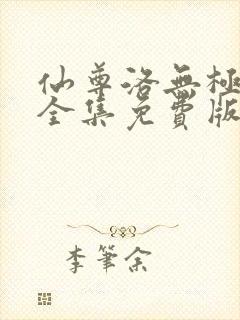 仙尊洛無極
全集免費版
李筆余